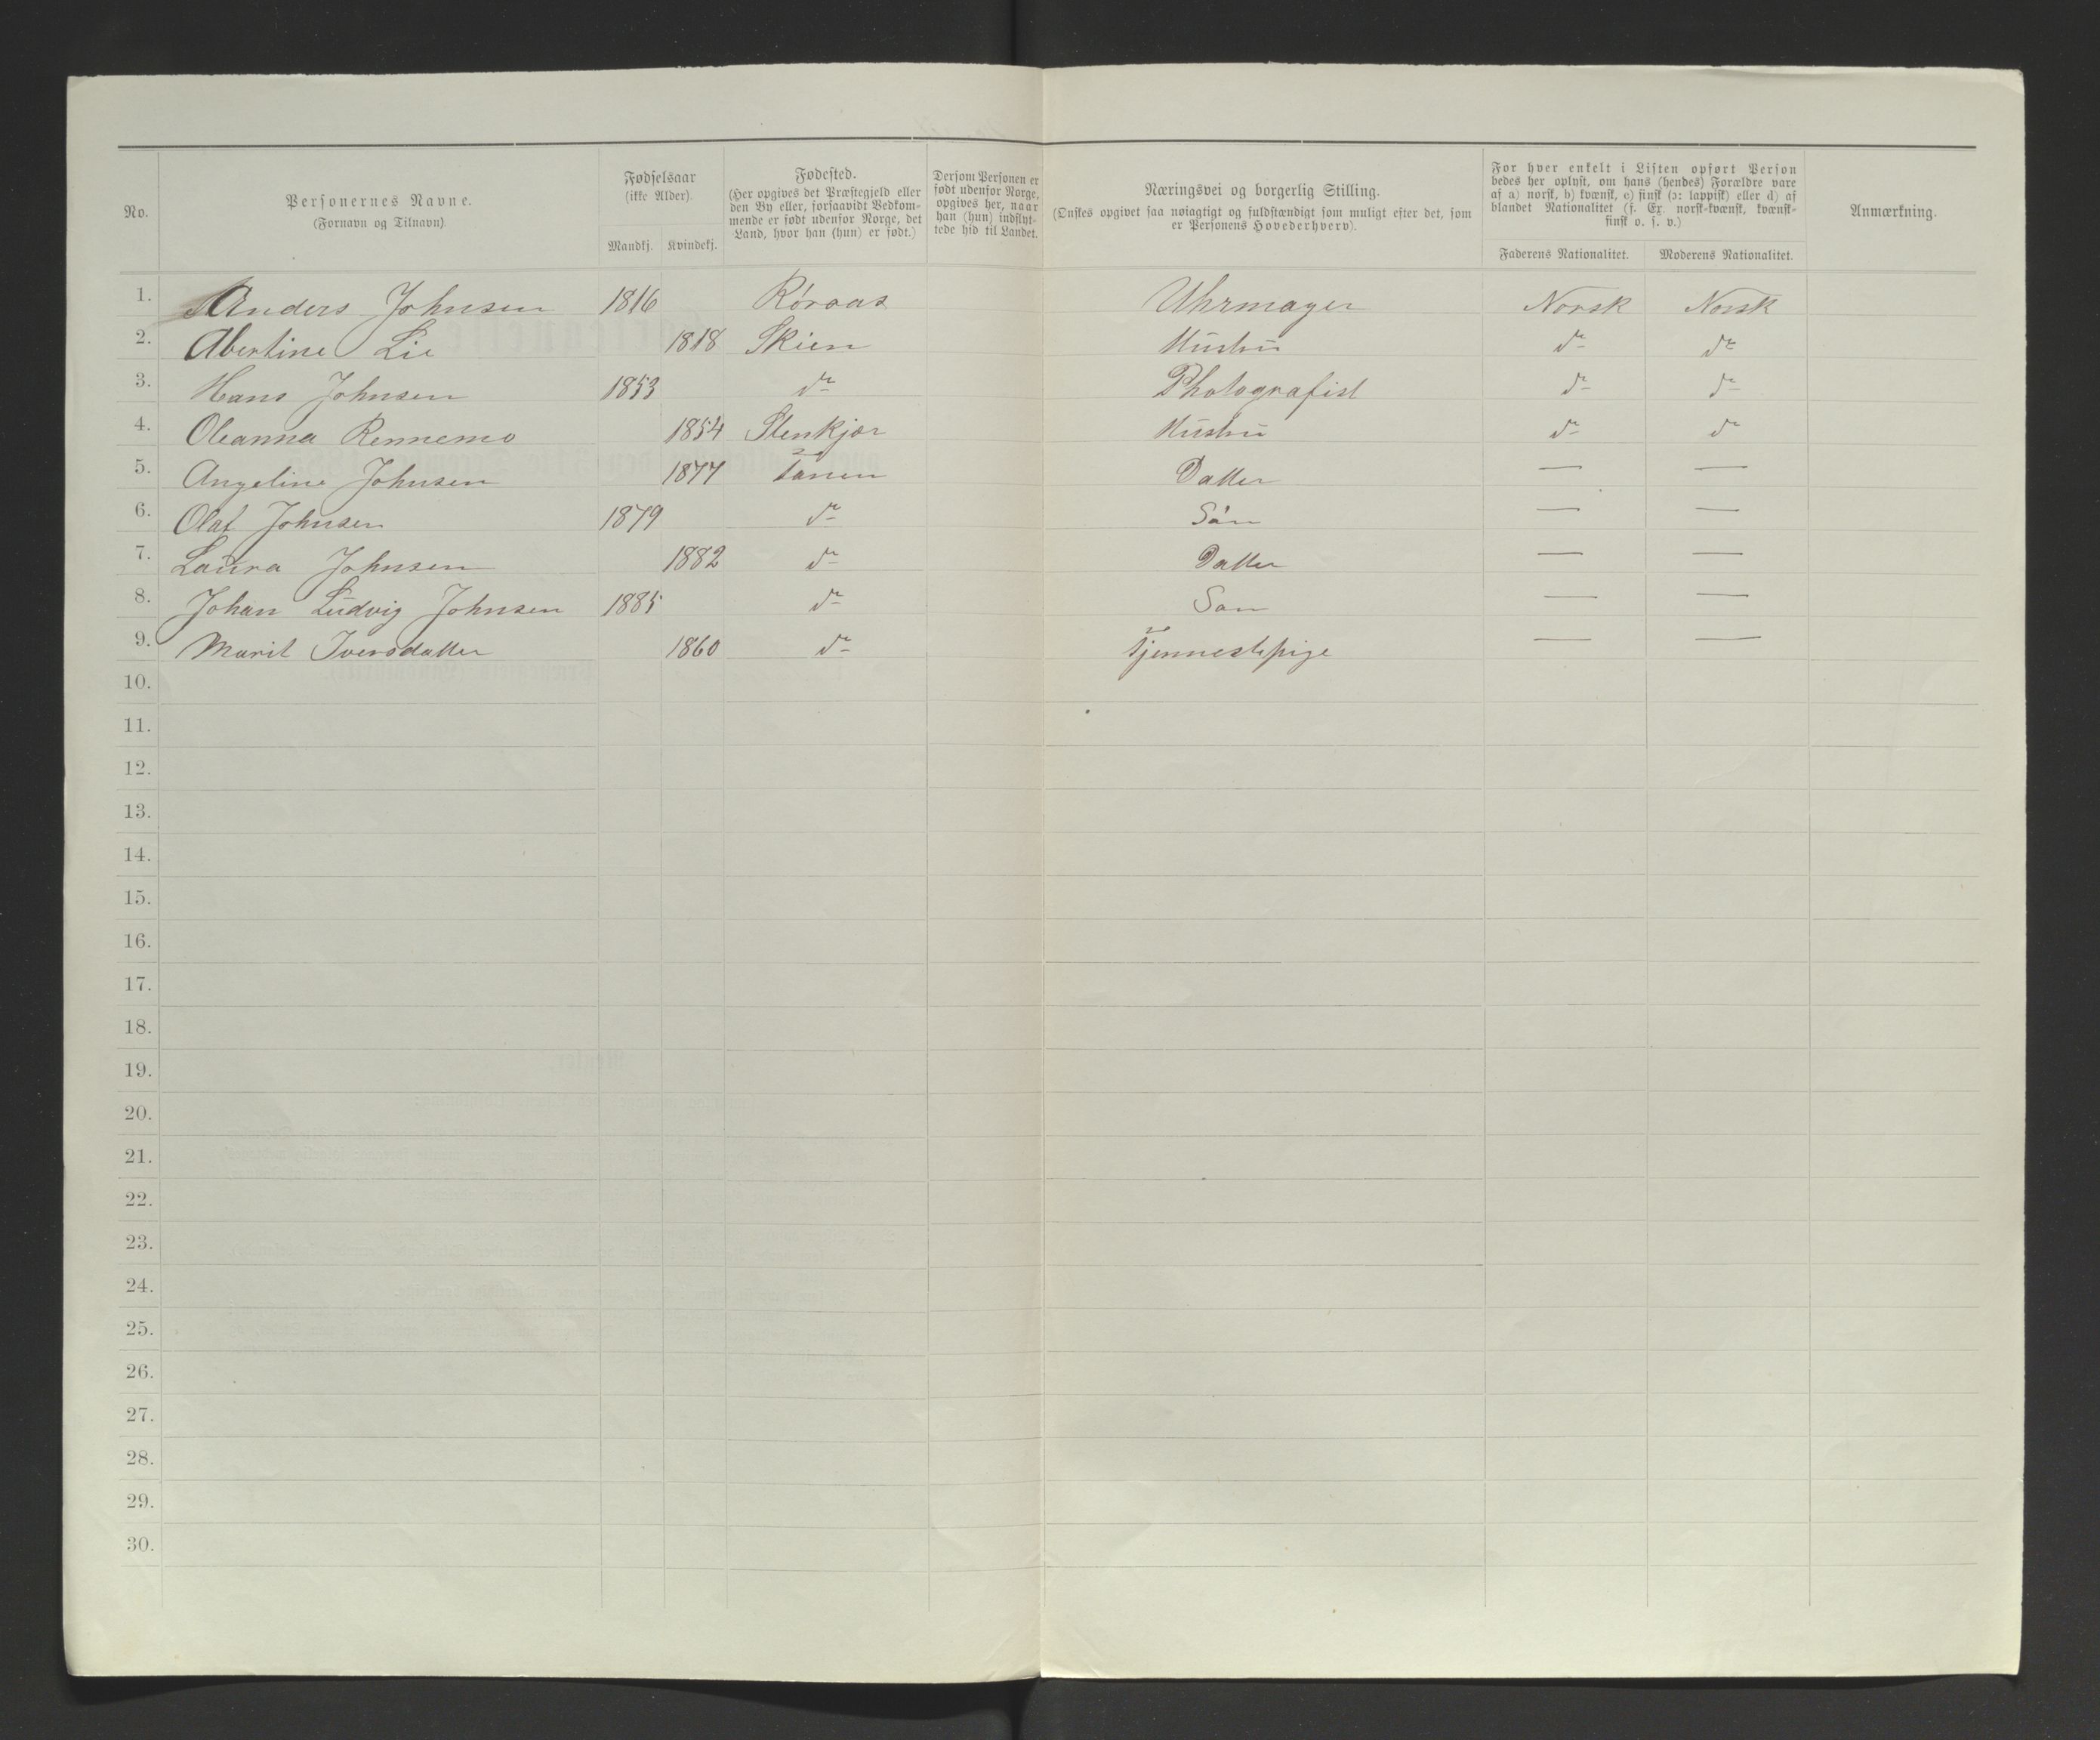 No.
Personernes Navne.
(Fornavn og Tilnavn)
Fødselsaar
(ikke Alder).
Mandkj. Kvindekj.
Fødested.
(Her opgives det Præstegjeld eller
den By eller, forsaavidt Vedkom-
mende er født udenfor Norge, det
Land, hvor han (hun) er født.)
Dersom Personen er
født udenfor Norge,
opgives her, naar
han (hun) indflyt-
tede hid til Landet.
Næringsvei og borgerlig Stilling.
(Ønskes opgivet saa nøiagtigt og fuldstændigt som muligt efter det, som
er Personens Hovederhverv).
For hver enkelt i Listen opført Person
bedes her oplyst, om hans (hendes) Forældre vare
af a) norsk, b) kvænsk, c) finsk (ɔ: lappisk) eller d) af
blandet Nationalitet (f. Ex. norsk-kvænsk, kvænsk-
finsk o. s. v.)
Faderens Nationalitet. Moderens Nationalitet.
Anmærkning.
1. Anders Johnsen 1816 Röraas Uhrmager Norsk Norsk
2. Abertine Lie 1818 Skien Hustru do do
3. Hans Johnsen 1853 do Photografist do do
4. Oleanna Rennemo 1854 Stenkjær Hustru do do
5. Angeline Johnsen 1877 Tanen Datter — —
6. Olaf Johnsen 1879 do Sön — —
7. Laura Johnsen 1882 do Datter — —
8. Johan Ludvig Johnsen 1885 do Søn — —
9. Marit Iversdatter 1860 do Tjennestepige — —
10.
11.
12.
13.
14.
15.
16.
17.
18.
19.
20.
21.
22.
23.
24.
25.
26.
27.
28.
29.
30.